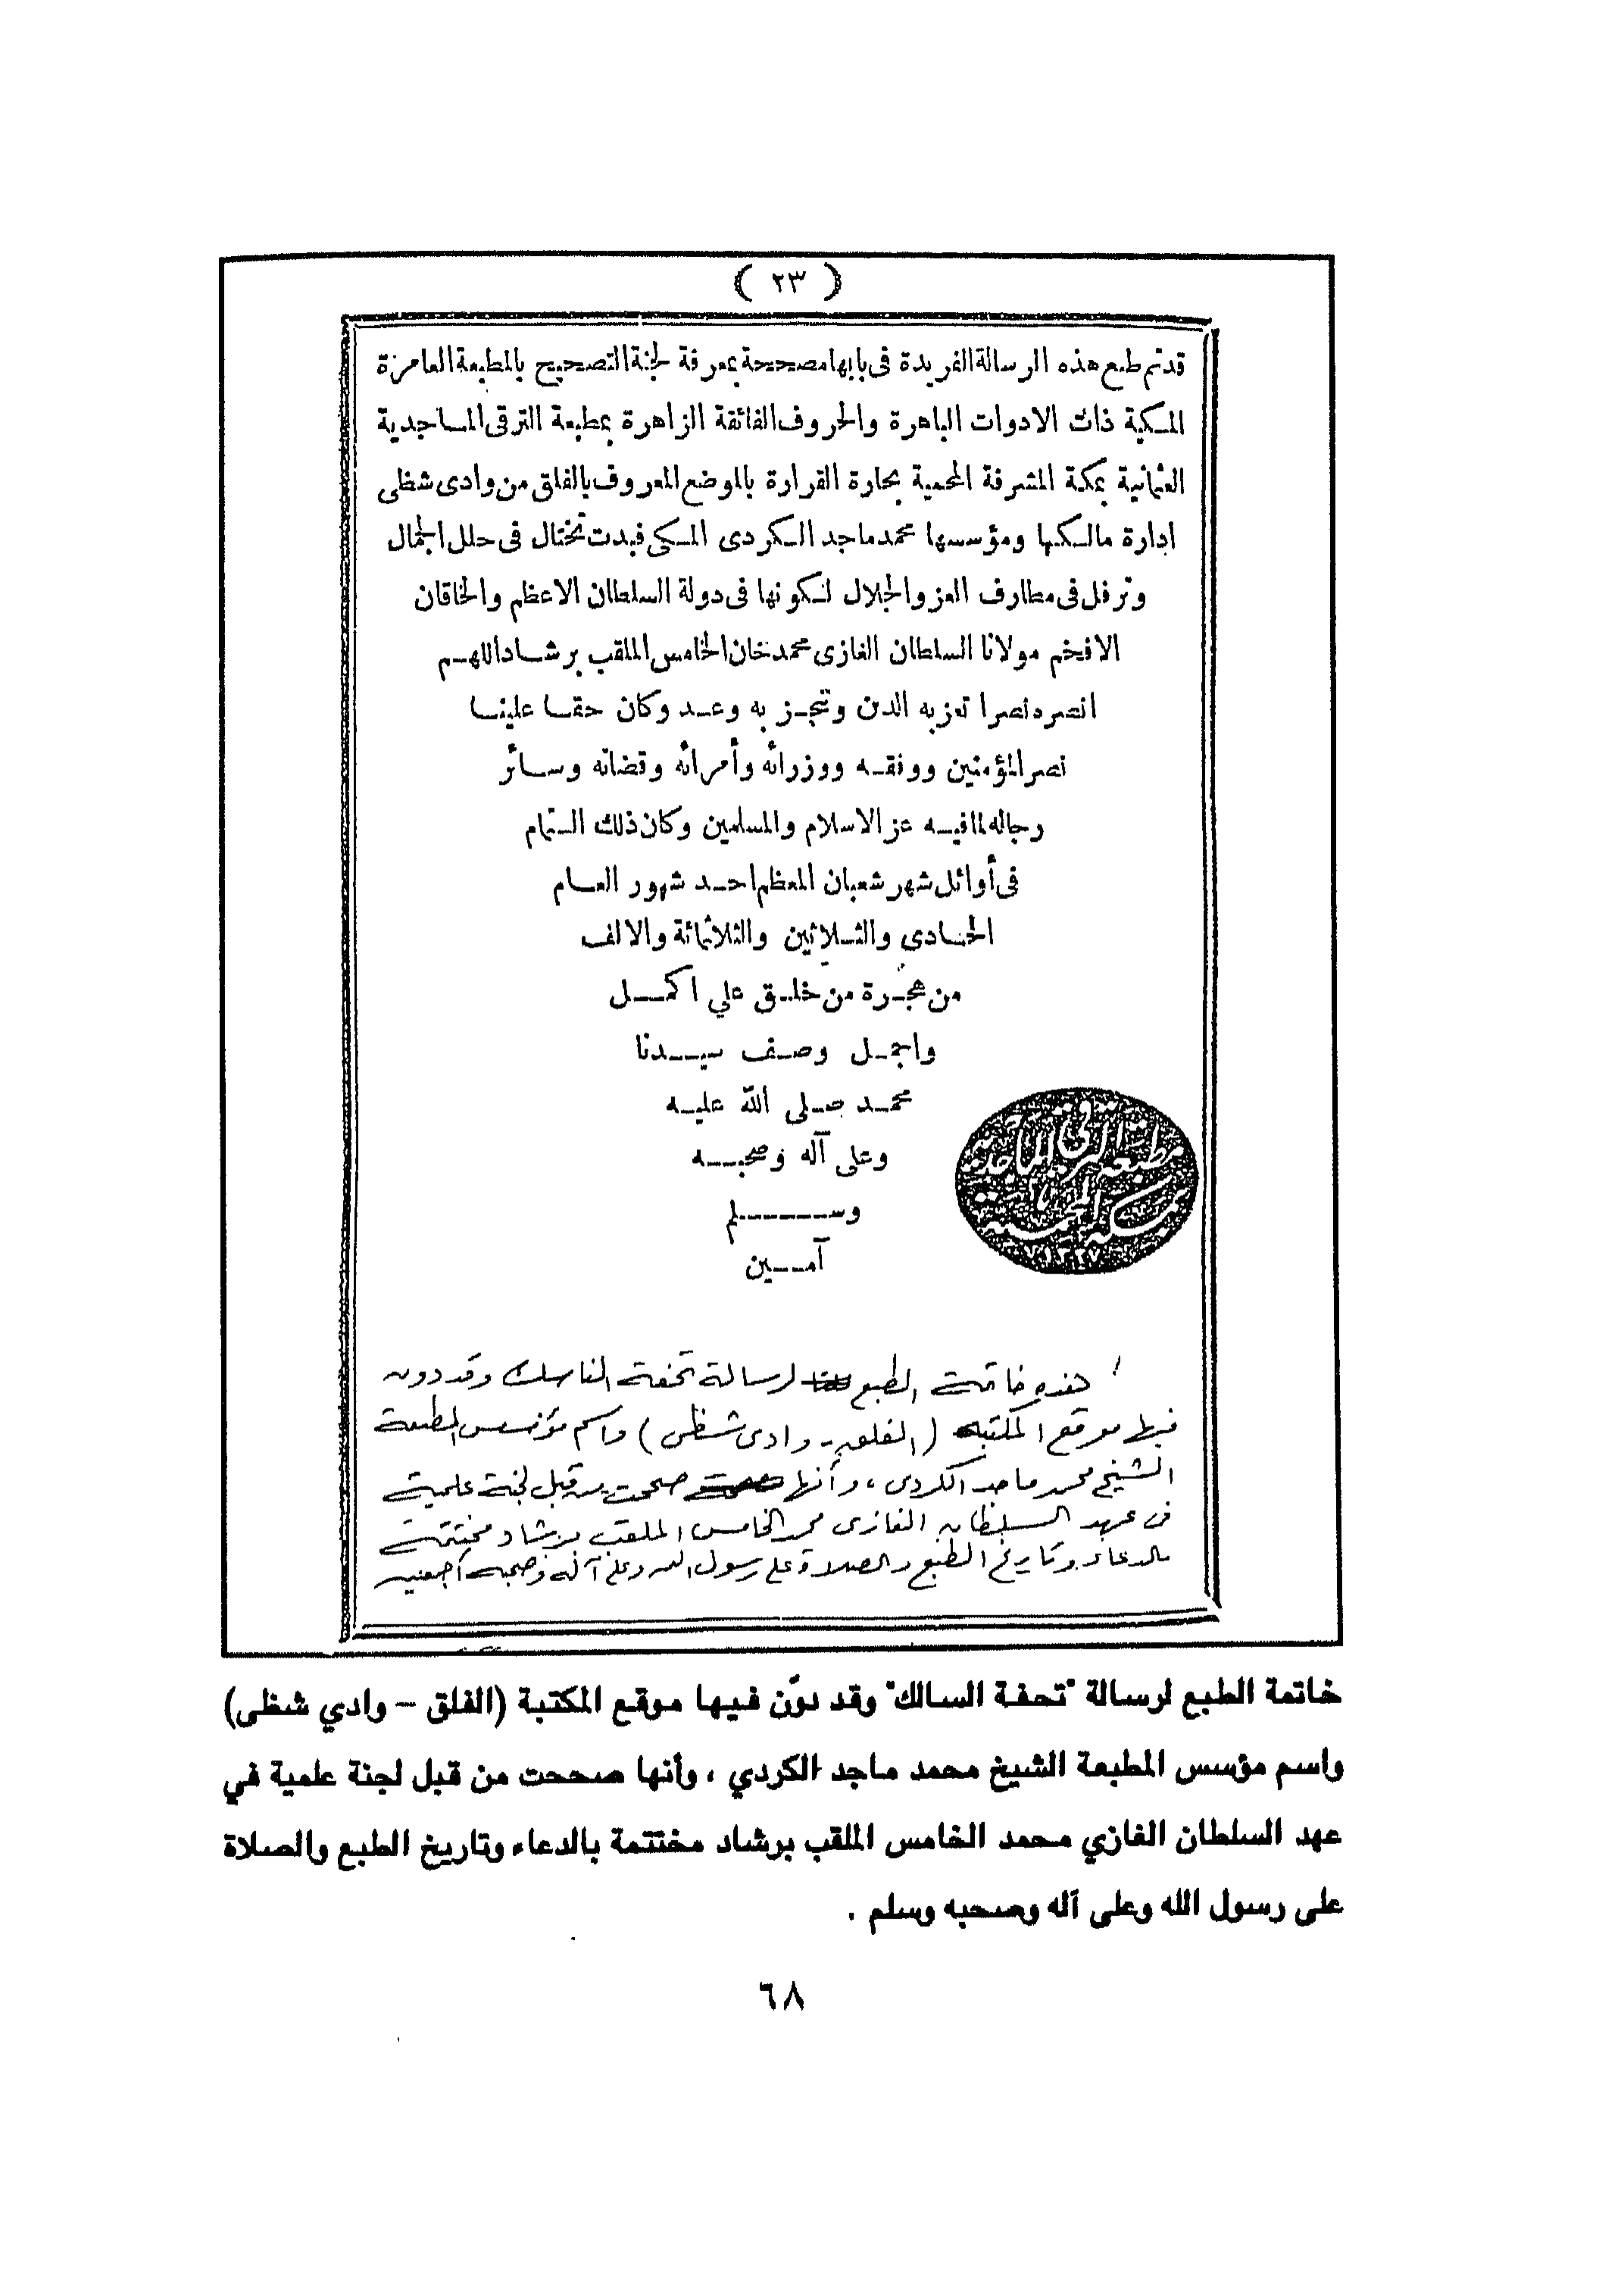 ( ٢٣ )
قدتم طبع هذه الرسالة الفريدة فى بابها مصححة بمعرفة لجنة التصحيح بالمطبعة العامرة
المكية ذات الادوات الباهرة والحروف الفائقة الزاهرة بمطبعة الترقى الماجدية
العثمانية بمكة المشرفة المحمية بحارة القرارة بالموضع المعروف بالفلق من وادى شظى
ادارة مالكها ومؤسسها محمد ماجد الكردى المكى فبدت تختال فى حلل الجمال
وترفل فى مطارف العز والجلال لكونها فى دولة السلطان الاعظم والخاقان
الافخم مولانا السلطان الغازى محمد خان الخامس الملقب برشاد اللهم
انصره نصرا تعز به الدن وتنجز به وعد وكان حقا علينا
نصر المؤمنين ووفقه ووزرائه وأمرائه وقضاته وسائر
رجاله لما فيه عز الاسلام والمسلمين وكان ذلك التمام
فى أوائل شهر شعبان المعظم احد شهور العام
الحادى والثلاثين والثلاثمائة والالف
من هجرة من خلق علي اكمل
واجمل وصف سيدنا
محمد صلى الله عليه
وعلى آله وصحبه
وسلم
آمين
مطبعة الترقى الماجدية
بمكة المحمية
١٣٢٧
هذه خاتمة الطبع لرسالة تحفة الناسك وقد دون
فيها موقع المكتبة (الفلق - وادى شظى) واسم مؤسس المطبعة
الشيخ محمد ماجد الكردى ، وأنها صححت من قبل لجنة علمية
فى عهد السلطان الغازى محمد الخامس الملقب برشاد مختتمة
بالدعاء وتاريخ الطبع والصلاة على رسول الله وعلى آله وصحبه أجمعين
خاتمة الطبع لرسالة "تحفة السالك" وقد دوّن فيها موقع المكتبة (الفلق - وادي شظى)
واسم مؤسس المطبعة الشيخ محمد ماجد الكردي ، وأنها صححت من قبل لجنة علمية في
عهد السلطان الغازي محمد الخامس الملقب برشاد مختتمة بالدعاء وتاريخ الطبع والصلاة
على رسول الله وعلى آله وصحبه وسلم .
٦٨